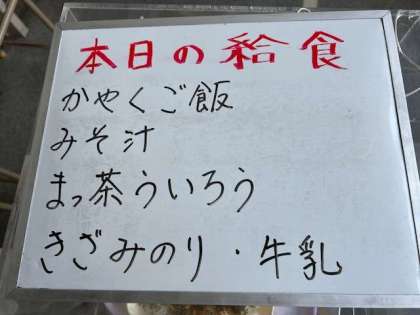 本日の給食
かやくご飯
みそ汁
まっ茶ういろう
きざみのり・牛乳